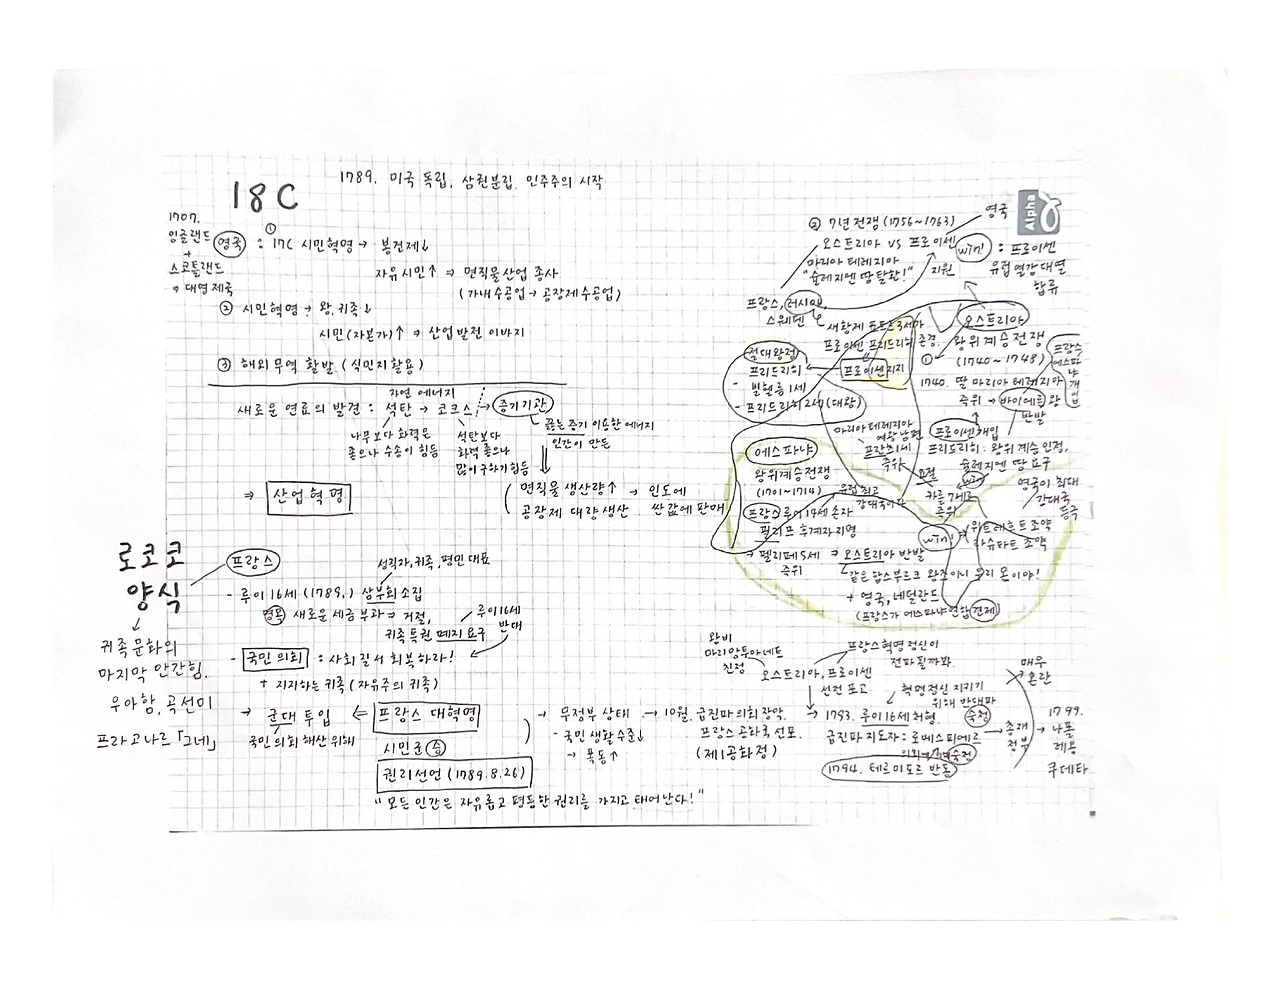 18C
1789. 미국 독립, 삼권분립. 민주주의 시작
1707.
잉글랜드
+
스코틀랜드
→ 대영제국
영국 :
① 17C 시민혁명 → 봉건제↓
자유시민↑ ⇒ 면직물산업 종사
(가내수공업 → 공장제수공업)
② 시민혁명 → 왕, 귀족↓
시민(자본가)↑ ⇒ 산업발전 이바지
③ 해외무역 활발 (식민지활용)
자연 에너지
새로운 연료의 발견 : 석탄 → 코크스 → 증기기관
나무보다 화력은
좋으나 수송이 힘듬
석탄보다
화력 좋으나
많이 구하기힘듬
끓는 증기 이용한 에너지
인간이 만든
⇒ 산업혁명
( 면직물 생산량↑ → 인도에
공장제 대량생산 싼값에 판매
로코코
양식
↓
귀족문화의
마지막 안간힘.
우아함, 곡선미
프라고나르 「그네」
프랑스
성직자, 귀족, 평민 대표
- 루이 16세 (1789.) 삼부회 소집
명목 새로운 세금부과 ⇒ 거절,
귀족 특권 폐지 요구
루이16세
반대
- 국민 의회 : 사회질서 회복하라!
+ 지지하는 귀족 (자유주의 귀족)
→ 군대 투입 ⇐ 프랑스 대혁명
국민의회 해산 위해
시민군 승
권리선언 (1789.8.26)
"모든 인간은 자유롭고 평등한 권리를 가지고 태어난다!"
→ 무정부 상태
- 국민 생활수준↓
→ 폭동↑
→ 10월. 급진파 의회 장악.
프랑스 공화국 선포.
(제1공화정)
왕비
마리앙투아네트
친정
오스트리아, 프로이센
선전 포고
프랑스혁명 정신이
전파될까봐.
혁명정신 지키기
위해 반대파
숙청
→ 1793. 루이16세 처형.
급진파 지도자 : 로베스피에르
숙청
1794. 테르미도르 반동
→ 총재
정부
매우
혼란
→ 1799.
나폴
레옹
쿠데타
② 7년 전쟁 (1756~1763)
영국
오스트리아 VS 프로이센
지원
마리아 테레지아
"슐레지엔 땅 탈환!"
win! : 프로이센
유럽 열강 대열
합류
프랑스, 러시아,
스웨덴
새황제 표트르3세가
프로이센 프리드리히 존경.
프로이센 지지
절대왕정
프리드리히
- 빌헬름 1세
- 프리드리히 2세 (대왕)
오스트리아
① 왕위계승전쟁
(1740~1748)
1740. 딸 마리아 테레지아
즉위 → 바이에른 왕
반발
프랑스
에스파
냐
개
입
마리아 테레지아
여왕 남편
프란츠 1세
즉위
프로이센 개입
프리드리히 : 왕위 계승 인정,
슐레지엔 땅 요구
win
카를 7세로
즉위
영국이 최대
강대국
등극
에스파냐
왕위계승전쟁
(1701~1714)
유럽 최고
강대국이자
프랑스 루이 14세 손자
필리프 후계자 지명
→ 펠리페 5세
즉위
→ 오스트리아 반발
같은 합스부르크 왕조이니 우리 몫이야!
+ 영국, 네덜란드
(프랑스가 에스파냐 연합 견제)
win! → 위트레흐트 조약
라슈타트 조약
Alpha